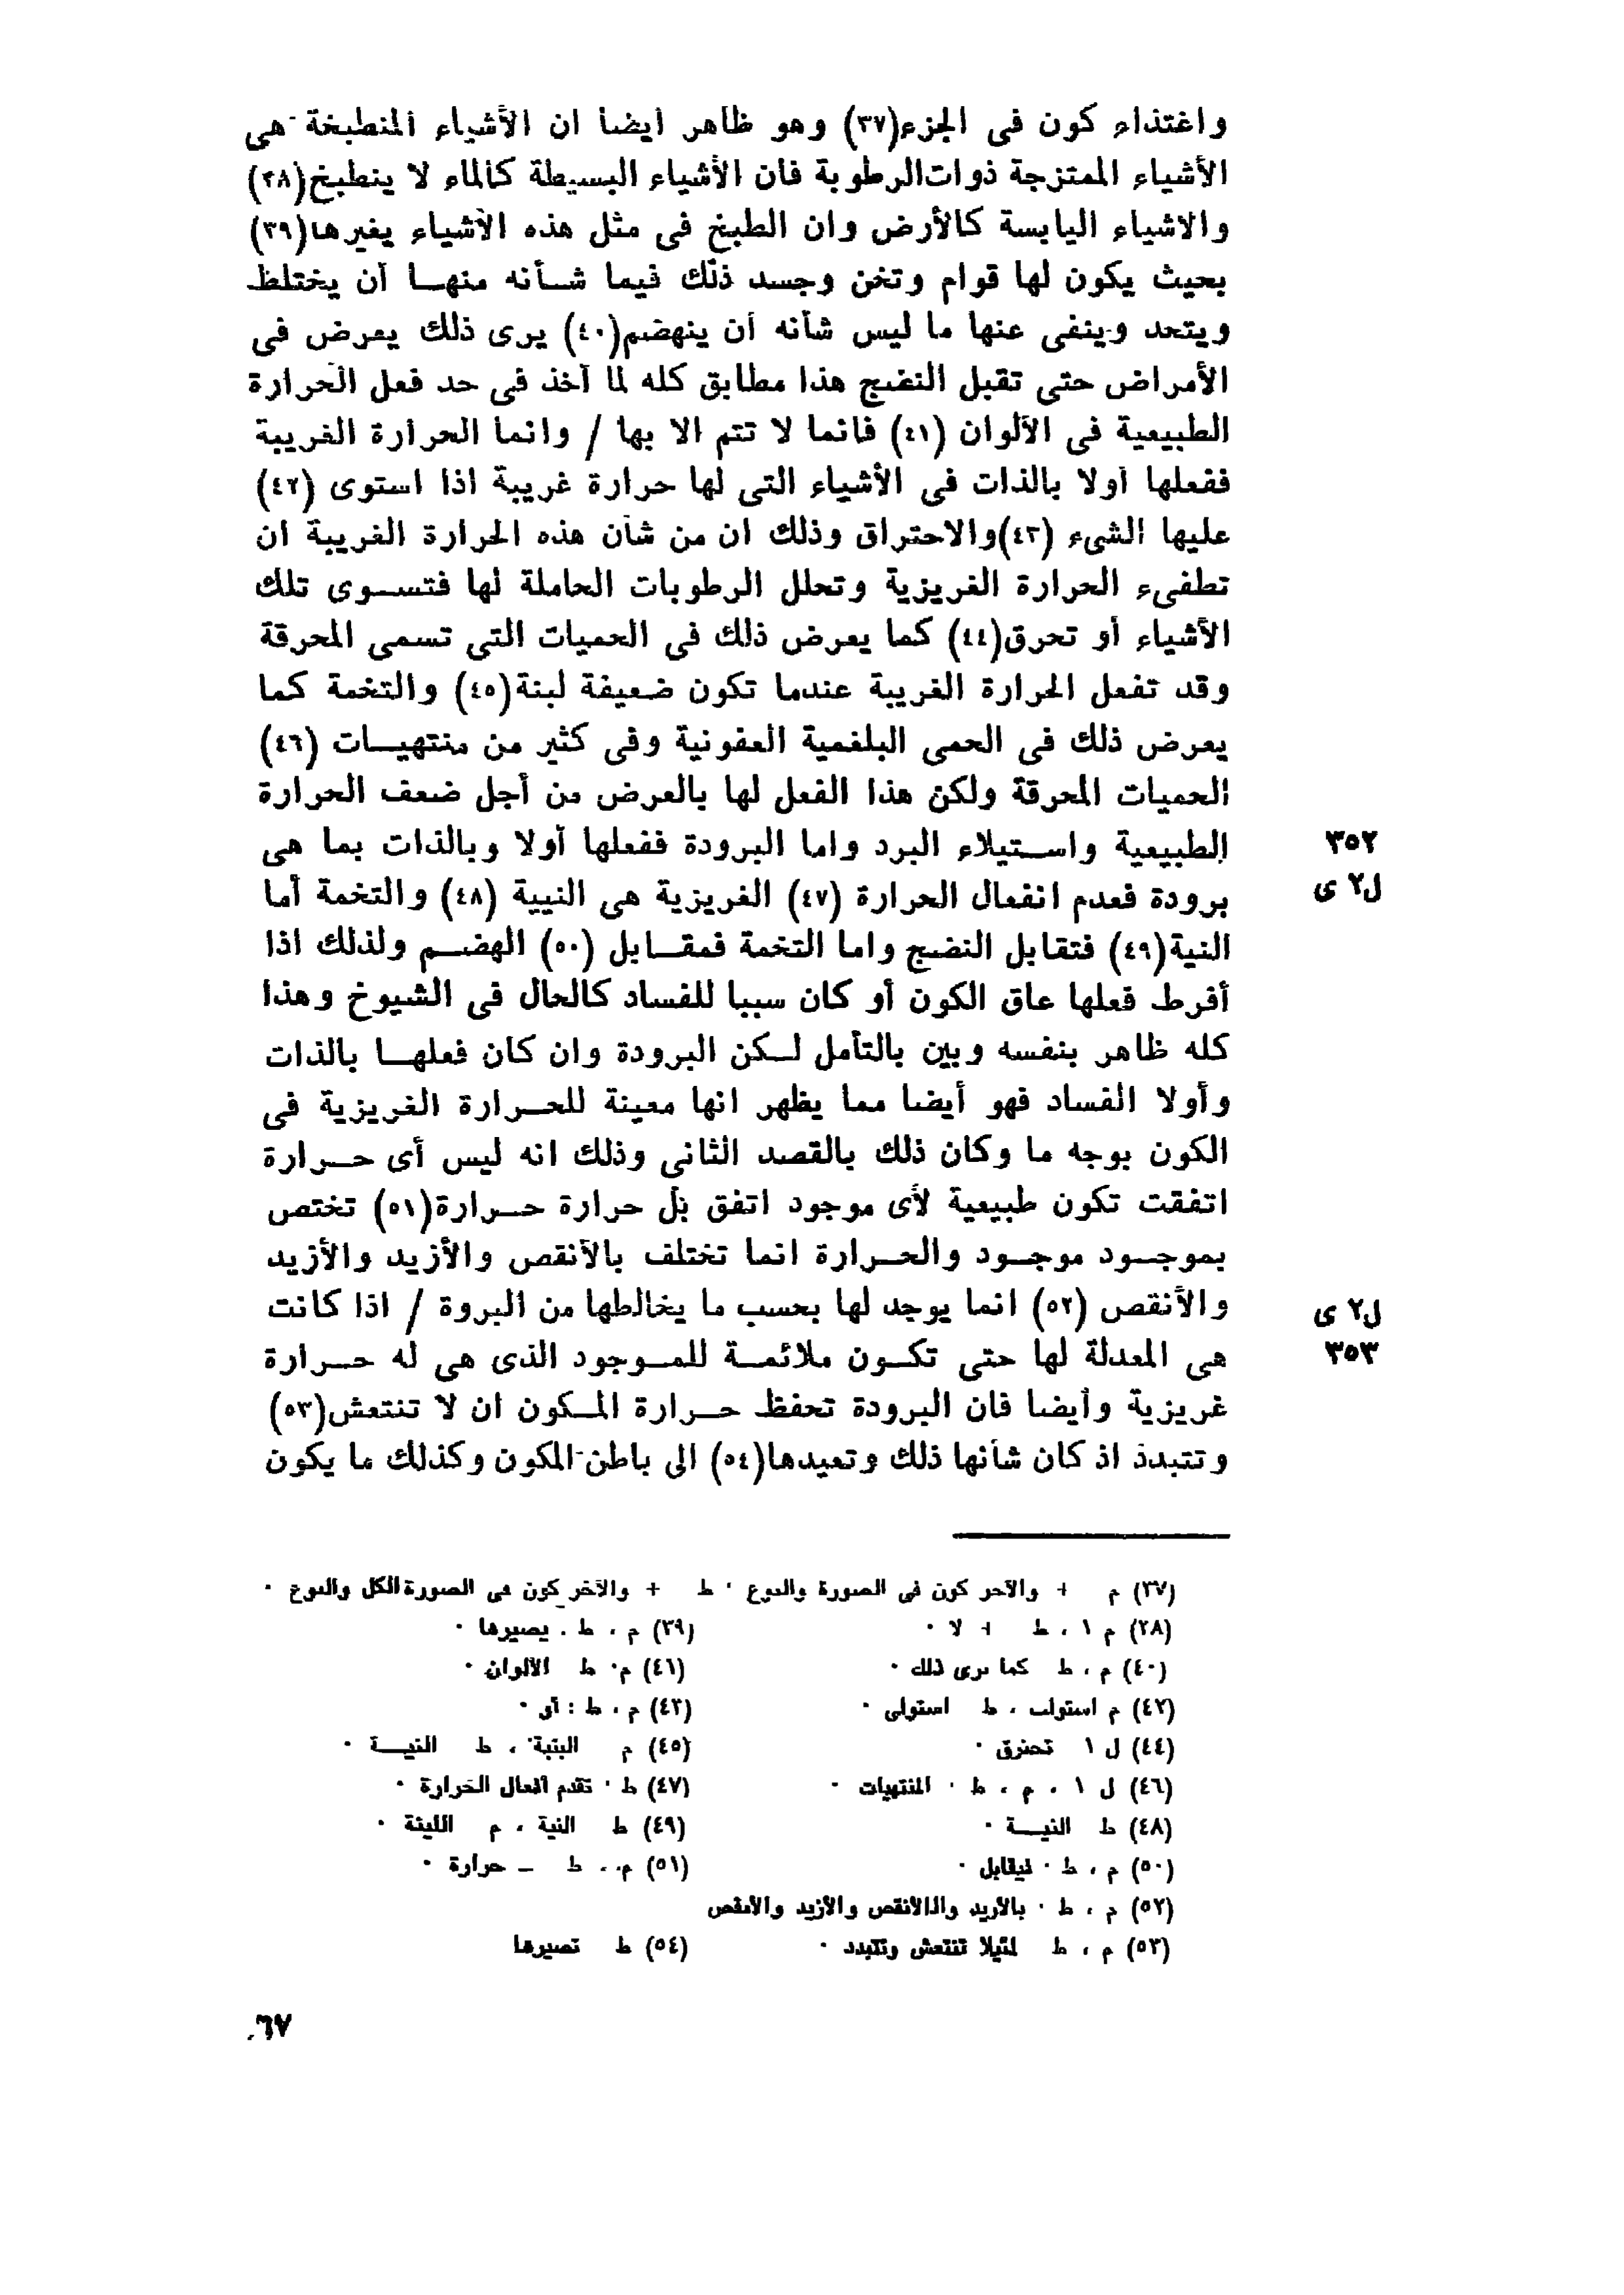 واغتذاء كون فى الجزء(٣٧) وهو ظاهر أيضا ان الأشياء المنطبخة هى
الأشياء الممتزجة ذوات الرطوبة فان الأشياء البسيطة كالماء لا ينطبخ(٣٨)
والاشياء اليابسة كالأرض وان الطبخ فى مثل هذه الأشياء يغيرها(٣٩)
بحيث يكون لها قوام وتخن وجسد ذلك فيما شأنه منها أن يختلط
ويتحد وينفى عنها ما ليس شأنه أن ينهضم(٤٠) يرى ذلك يعرض فى
الأمراض حتى تقبل النضج هذا مطابق كله لما أخذ فى حد فعل الحرارة
الطبيعية فى الألوان (٤١) فانما لا تتم الا بها / وانما الحرارة الغريبة
ففعلها أولا بالذات فى الأشياء التى لها حرارة غريبة اذا استوى (٤٢)
عليها الشىء (٤٣)والاحتراق وذلك ان من شأن هذه الحرارة الغريبة ان
تطفىء الحرارة الغريزية وتحلل الرطوبات الحاملة لها فتسوى تلك
الأشياء أو تحرق(٤٤) كما يعرض ذلك فى الحميات التى تسمى المحرقة
وقد تفعل الحرارة الغريبة عندما تكون ضعيفة لبنة(٤٥) والتخمة كما
يعرض ذلك فى الحمى البلغمية العفونية وفى كثير من منتهيات (٤٦)
الحميات المحرقة ولكن هذا الفعل لها بالعرض من أجل ضعف الحرارة
الطبيعية واستيلاء البرد واما البرودة ففعلها أولا وبالذات بما هى
٣٥٢
برودة فعدم انفعال الحرارة (٤٧) الغريزية هى النيية (٤٨) والتخمة أما
ل٢ ى
النية(٤٩) فتقابل النضج واما التخمة فمقابل (٥٠) الهضم ولذلك اذا
أفرط فعلها عاق الكون أو كان سببا للفساد كالحال فى الشيوخ وهذا
كله ظاهر بنفسه وبين بالتأمل لكن البرودة وان كان فعلها بالذات
وأولا الفساد فهو أيضا مما يظهر انها معينة للحرارة الغريزية فى
الكون بوجه ما وكان ذلك بالقصد الثانى وذلك انه ليس أى حرارة
اتفقت تكون طبيعية لأى موجود اتفق بل حرارة حرارة(٥١) تختص
بموجود موجود والحرارة انما تختلف بالأنقص والأزيد والأزيد
والأنقص (٥٢) انما يوجد لها بحسب ما يخالطها من البروة / اذا كانت
ل٢ ى
هى المعدلة لها حتى تكون ملائمة للموجود الذى هى له حرارة
٣٥٣
غريزية وأيضا فان البرودة تحفظ حرارة المكون ان لا تنتعش(٥٣)
وتتبدد اذ كان شأنها ذلك وتعيدها(٥٤) الى باطن المكون وكذلك ما يكون
(٣٧) م + والآخر كون فى الصورة والنوع ٠ ط + والآخر كون فى الصورة الكل والنوع ٠
(٣٨) م ١ ، ط + لا ٠ (٣٩) م ، ط . يصيرها ٠
(٤٠) م ، ط كما يرى ذلك ٠ (٤١) م٠ ط الألوان ٠
(٤٢) م استولت ، ط استولى ٠ (٤٣) م ، ط : أى ٠
(٤٤) ل ١ تحترق ٠ (٤٥) م البنية ، ط النيـة ٠
(٤٦) ل ١ ، م ، ط ٠ المنتهيات ٠ (٤٧) ط ٠ تقدم أفعال الحرارة ٠
(٤٨) ط النيـة ٠ (٤٩) ط النية ، م اللينة ٠
(٥٠) م ، ط ٠ فيقابل ٠ (٥١) م، ط ــ حرارة ٠
(٥٢) م ، ط ٠ بالأزيد والالأنقص والأزيد والأنقص
(٥٣) م ، ط لئيلا تنتعش وتتبدد ٠ (٥٤) ط تصيرها
٦٧